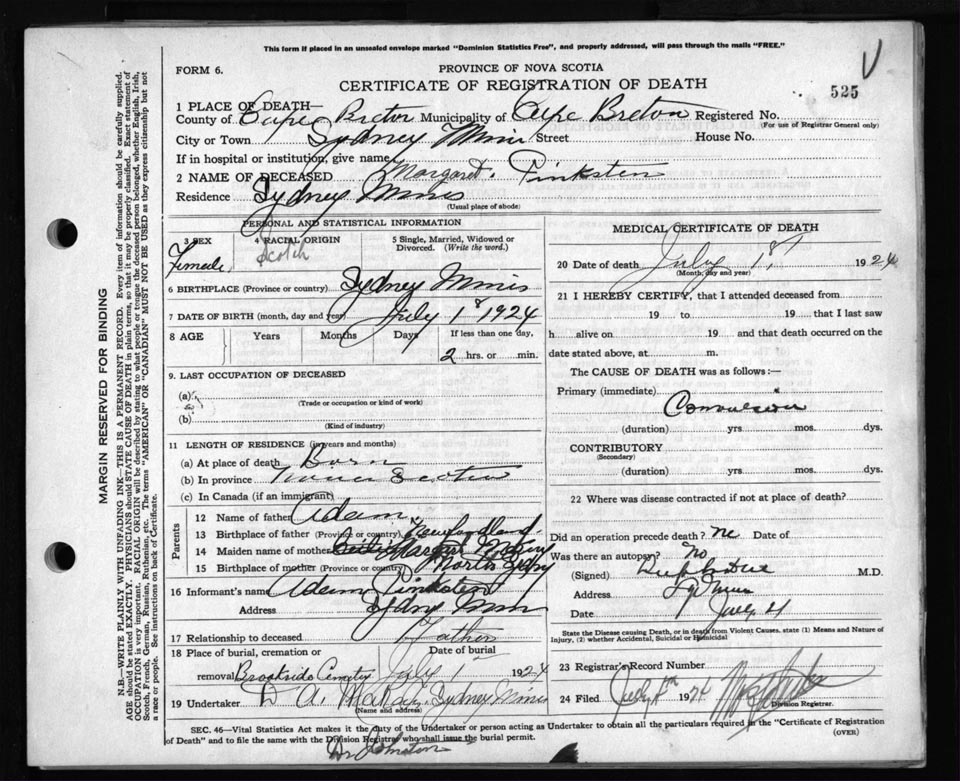 This form if placed in an unsealed envelope marked "Dominion Statistics Free", and properly addressed, will pass through the mails "FREE."
FORM 6.
PROVINCE OF NOVA SCOTIA
CERTIFICATE OF REGISTRATION OF DEATH
525
1 PLACE OF DEATH—
County of Cape Breton Municipality of Cape Breton Registered No.
(For use of Registrar General only)
City or Town Sydney Mines Street House No.
If in hospital or institution, give name
2 NAME OF DECEASED Margaret Pinksten
Residence Sydney Mines
(Usual place of abode)
PERSONAL AND STATISTICAL INFORMATION
3 SEX Female
4 RACIAL ORIGIN Scotch
5 Single, Married, Widowed or Divorced. (Write the word.)
6 BIRTHPLACE (Province or country) Sydney Mines
7 DATE OF BIRTH (month, day and year) July 1st 1924
8 AGE Years Months Days If less than one day, 2 hrs. or min.
9. LAST OCCUPATION OF DECEASED
(a)
(Trade or occupation or kind of work)
(b)
(Kind of industry)
11 LENGTH OF RESIDENCE (in years and months)
(a) At place of death Born
(b) In province Nova Scotia
(c) In Canada (if an immigrant)
Parents
12 Name of father Adam
13 Birthplace of father (Province or country) Newfoundland
14 Maiden name of mother
15 Birthplace of mother (Province or country)
16 Informant's name Adam Pinksten
Address Sydney Mines
17 Relationship to deceased Father
18 Place of burial, cremation or removal Date of burial
Brookside Cemetery July 1st 1924
19 Undertaker D A Sydney Mines
(Name and address)
MEDICAL CERTIFICATE OF DEATH
20 Date of death July 1st 1924
(Month, day and year)
21 I HEREBY CERTIFY, that I attended deceased from
19 to 19 that I last saw
h alive on 19 and that death occurred on the
date stated above, at m.
The CAUSE OF DEATH was as follows:—
Primary (immediate) Convulsion
(duration) yrs. mos. dys.
CONTRIBUTORY
(Secondary)
(duration) yrs. mos. dys.
22 Where was disease contracted if not at place of death?
Did an operation precede death? no Date of
Was there an autopsy? no
(Signed) M.D.
Address Syd Mines
Date July 4
State the Disease causing Death, or in death from Violent Causes, state (1) Means and Nature of Injury, (2) whether Accidental, Suicidal or Homicidal
23 Registrar's Record Number
24 Filed July 1924
Division Registrar.
SEC. 46—Vital Statistics Act makes it the duty of the Undertaker or person acting as Undertaker to obtain all the particulars required in the "Certificate of Registration
of Death" and to file the same with the Division Registrar who shall issue the burial permit.
(OVER)
Dr Johnston
MARGIN RESERVED FOR BINDING
N.B.—WRITE PLAINLY WITH UNFADING INK—THIS IS A PERMANENT RECORD. Every item of information should be carefully supplied.
AGE should be stated EXACTLY. PHYSICIANS should STATE CAUSE OF DEATH in plain terms, so that it may be properly classified. Exact statement of
OCCUPATION is very important. RACIAL ORIGIN will be described by stating to what people or tongue the deceased person belonged, whether English, Irish,
Scotch, French, German, Russian, Ruthenian, etc. The terms "AMERICAN" or "CANADIAN" MUST NOT BE USED as they express citizenship but not
a race or people. See instructions on back of Certificate.